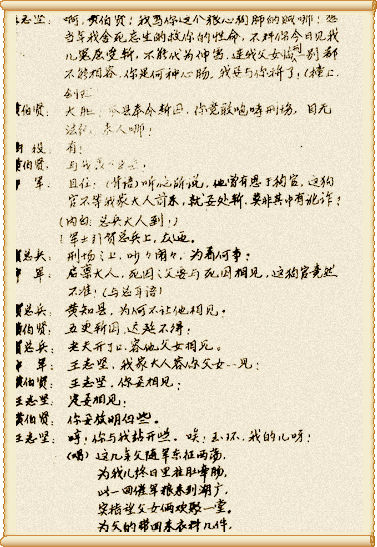 王志坚: 啊,黄伯贤!我骂你这个狼心狗肺的贼哪!想
当年我舍死忘生的救你的性命,不料你今日见我
儿冤屈受斩,不能代为伸雪,连我父女临别都
不能相容,你是何种心肠,我要与你拼了!(撞上,
黄伯贤: 大胆!本县奉令斩囚,你竟敢咆哮刑场,目无
法纪,来人哪!
有!
黄伯贤: 与我
军: 且住!(背语)听之所说,他曾有恩于狗官,这狗
官不等我家大人前来,就要处斩,莫非其中有诡诈?
(内白:总兵大人到!)
(军士引黄总兵上,友迎。
黄总兵: 刑场之上,吵吵闹闹,为着何事?
军: 启禀大人,死囚之父要与死囚相见,这狗官竟然
不准!(与总耳语)
黄总兵: 黄知县,为何不让他相见。
黄伯贤: 五更斩囚,迟熬不得!
黄总兵: 老夫开口,容他父女相见。
军: 王志坚,我家大人容你父女一见!
黄伯贤: 王志坚,你要相见!
王志坚: 定要相见!
黄伯贤: 你要放明白些。
王志坚: 哼!你与我站开些。唉!玉环,我的儿呀!
(唱)这几年父随军东征西荡,
为我儿终日里挂肚牵肠,
此一回催军粮来到湖广,
实指望父女俩欢聚一堂。
为父的带回来衣料几件,